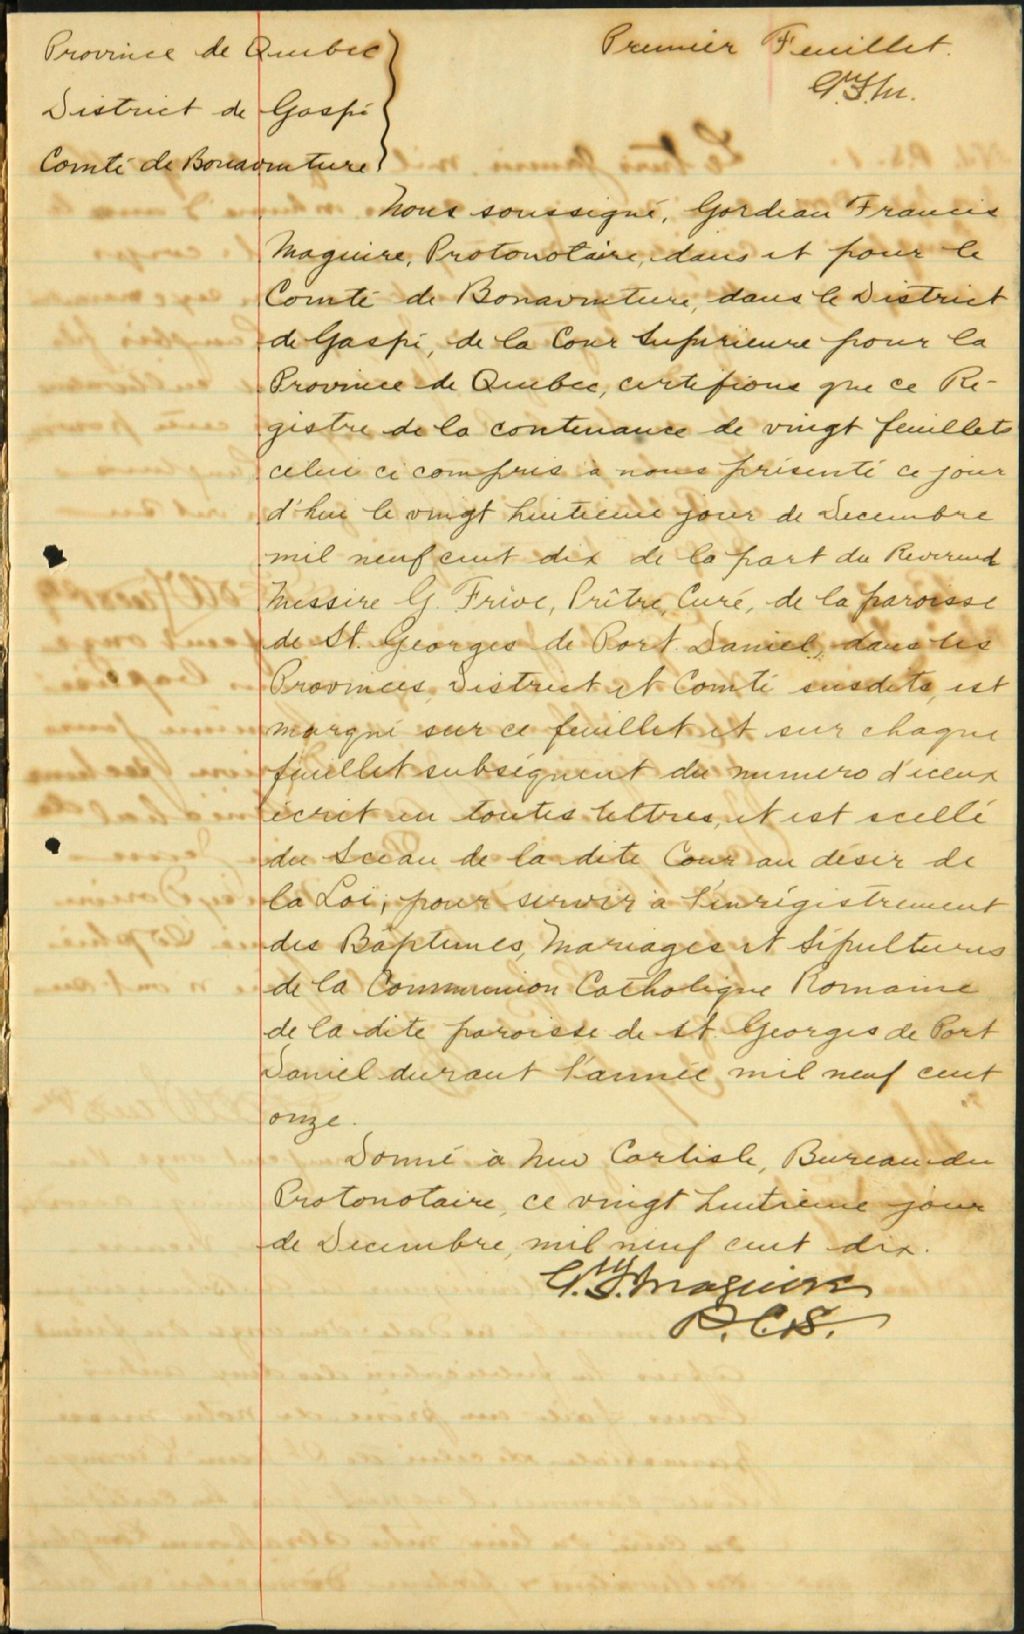 Province de Quebec
District de Gaspé
Comté de Bonaventure
Premier Feuillet.
G.F.M.
Nous soussigné, Gordean Francis
Maguire, Protonotaire, dans et pour le
Comté de Bonaventure, dans le District
de Gaspé, de la Cour Supérieure pour la
Province de Quebec, certifions que ce Re-
gistre de la contenance de vingt feuillets
celui ci compris a nous présenté ce jour
d'hui le vingt huitieme jour de Decembre
mil neuf cent dix de la part du Reverend
Messire G. Frève, Prêtre, Curé, de la paroisse
de St. Georges de Port Daniel, dans les
Provinces, District et Comté susdits, est
marqué sur ce feuillet et sur chaque
feuillet subséquent du numero d'iceux
écrit en toutes lettres, et est scellé
du Sceau de la dite Cour au désir de
la Loi, pour servir à l'enrégistrement
des Baptemes, Mariages et Sépultures
de la Communion Catholique Romaine
de la dite paroisse de St. Georges de Port
Daniel durant l'année mil neuf cent
onze.
Donné à New Carlisle, Bureau du
Protonotaire, ce vingt huitieme jour
de Decembre, mil neuf cent dix.
G.F. Maguire
P.C.S.